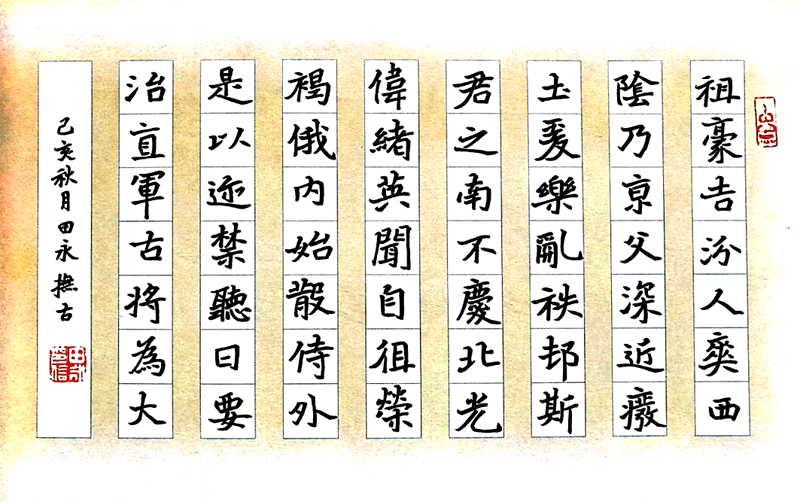 祖豪吉汾人奕西
陰乃京父深近癈
土爰樂亂秩邦斯
君之南不慶北光
偉緒英聞自徂榮
褐俄內始散侍外
是以逐禁聽日要
治直軍古將為大
己亥秋月田永撫古